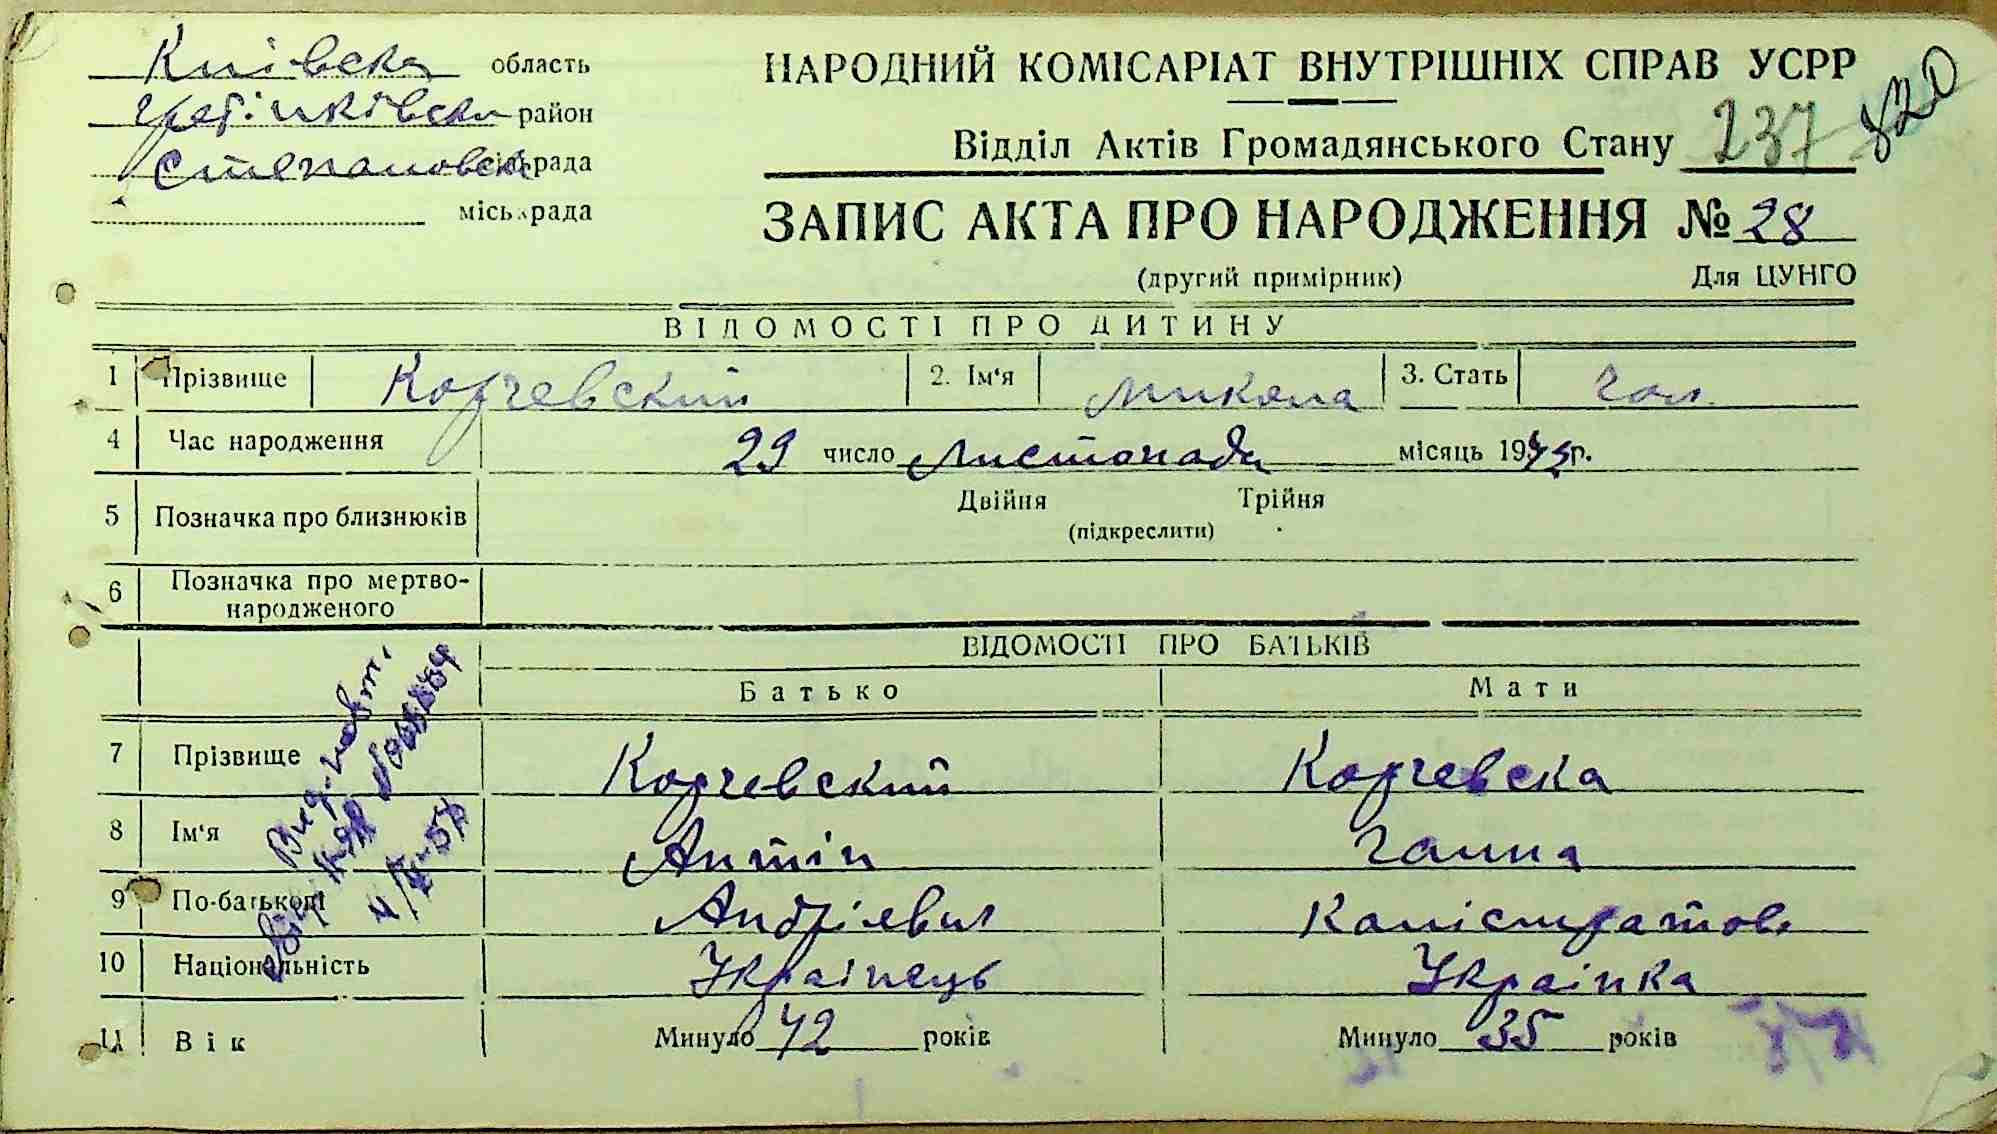 Київска область
Гребінківски район
Степановск сільрада
міськрада
НАРОДНИЙ КОМІСАРІАТ ВНУТРІШНІХ СПРАВ УСРР
Відділ Актів Громадянського Стану 237 820
ЗАПИС АКТА ПРО НАРОДЖЕННЯ № 28
(другий примірник) Для ЦУНГО
ВІДОМОСТІ ПРО ДИТИНУ
1 Прізвище Корчевский 2. Ім'я Микола 3. Стать Чол.
4 Час народження 29 число Листопада місяць 1945р.
5 Позначка про близнюків Двійня Трійня
(підкреслити)
6 Позначка про мертво-
народженого
ВІДОМОСТІ ПРО БАТЬКІВ
Батько Мати
7 Прізвище Корчевский Корчевска
8 Ім'я Антін Ганна
9 По-батькові Андрієвич Каністратов.
10 Національність Українець Українка
11 Вік Минуло 42 років Минуло 35 років
Вид. повт.